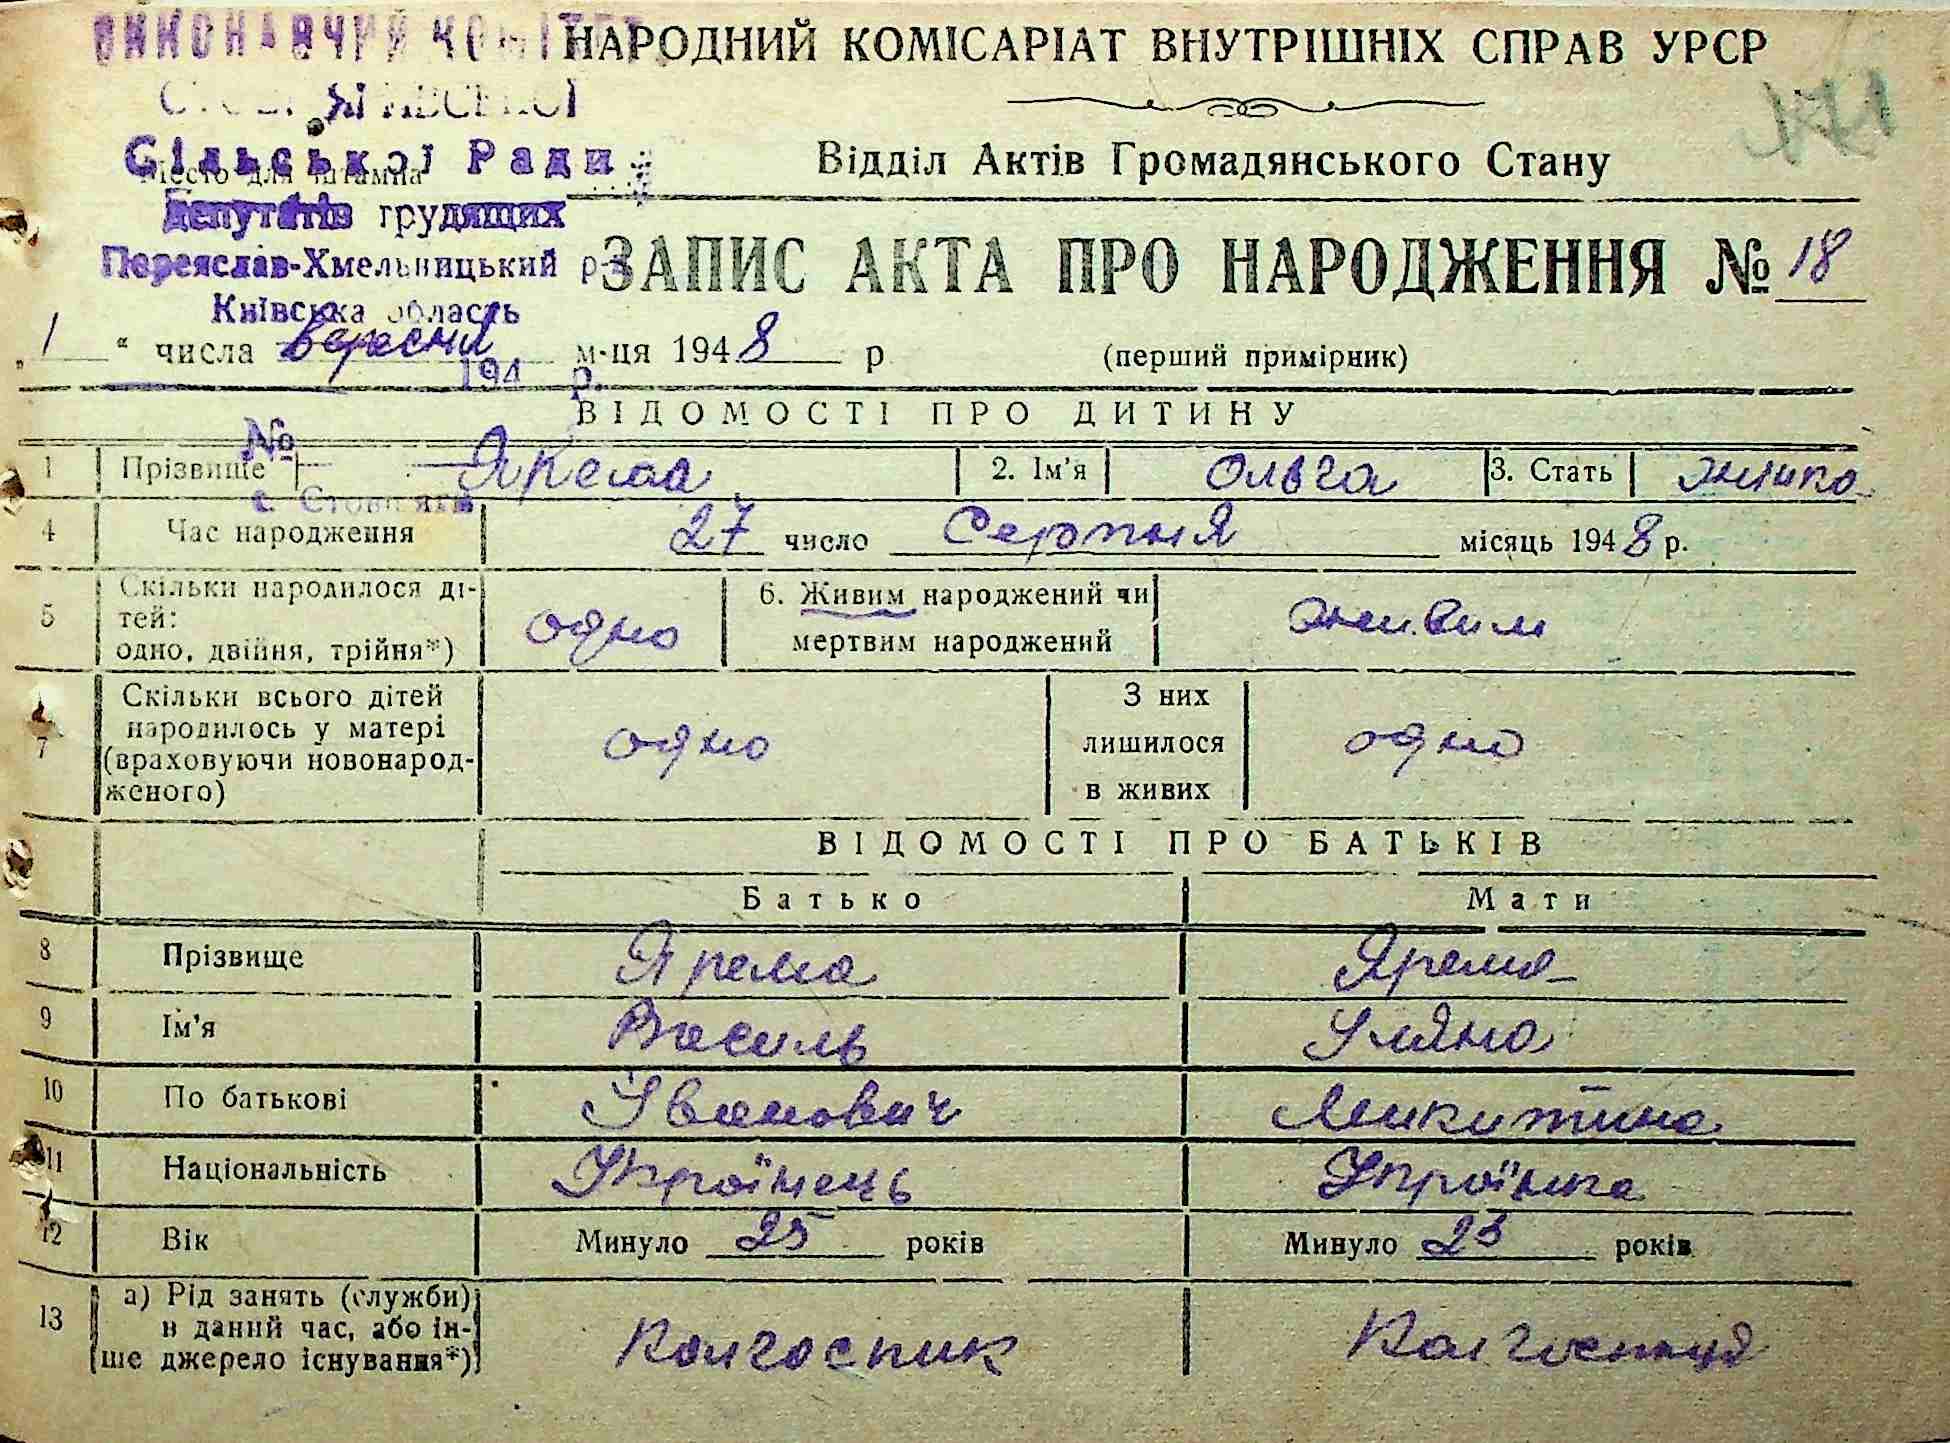 ВИКОНАВЧИЙ КОМІТЕТ
НАРОДНИЙ КОМІСАРІАТ ВНУТРІШНІХ СПРАВ УРСР
Сільської Ради
Місто для штампа
Відділ Актів Громадянського Стану
Депутатів трудящих
Переяслав-Хмельницький р-н
ЗАПИС АКТА ПРО НАРОДЖЕННЯ № 18
Київська область
„ 1 “ числа вересня м-ця 1948 р (перший примірник)
194 р.
ВІДОМОСТІ ПРО ДИТИНУ
№
1 Прізвище Ярема 2. Ім'я Ольга 3. Стать жінка
с. Стовп'яги
4 Час народження 27 число Серпня місяць 1948 р.
5 Скільки народилося ді-
тей:
одно, двійня, трійня*) одно 6. Живим народжений чи
мертвим народжений живим
7 Скільки всього дітей
народилось у матері
(враховуючи новонарод-
женого) одно З них
лишилося
в живих одно
ВІДОМОСТІ ПРО БАТЬКІВ
Батько Мати
8 Прізвище Ярема Ярема
9 Ім'я Василь Уляна
10 По батькові Іванович Микитина
11 Національність Українець Українка
12 Вік Минуло 25 років Минуло 23 років
13 а) Рід занять (служби)
в даний час, або ін-
ше джерело існування*) Колгоспник Колгоспниця